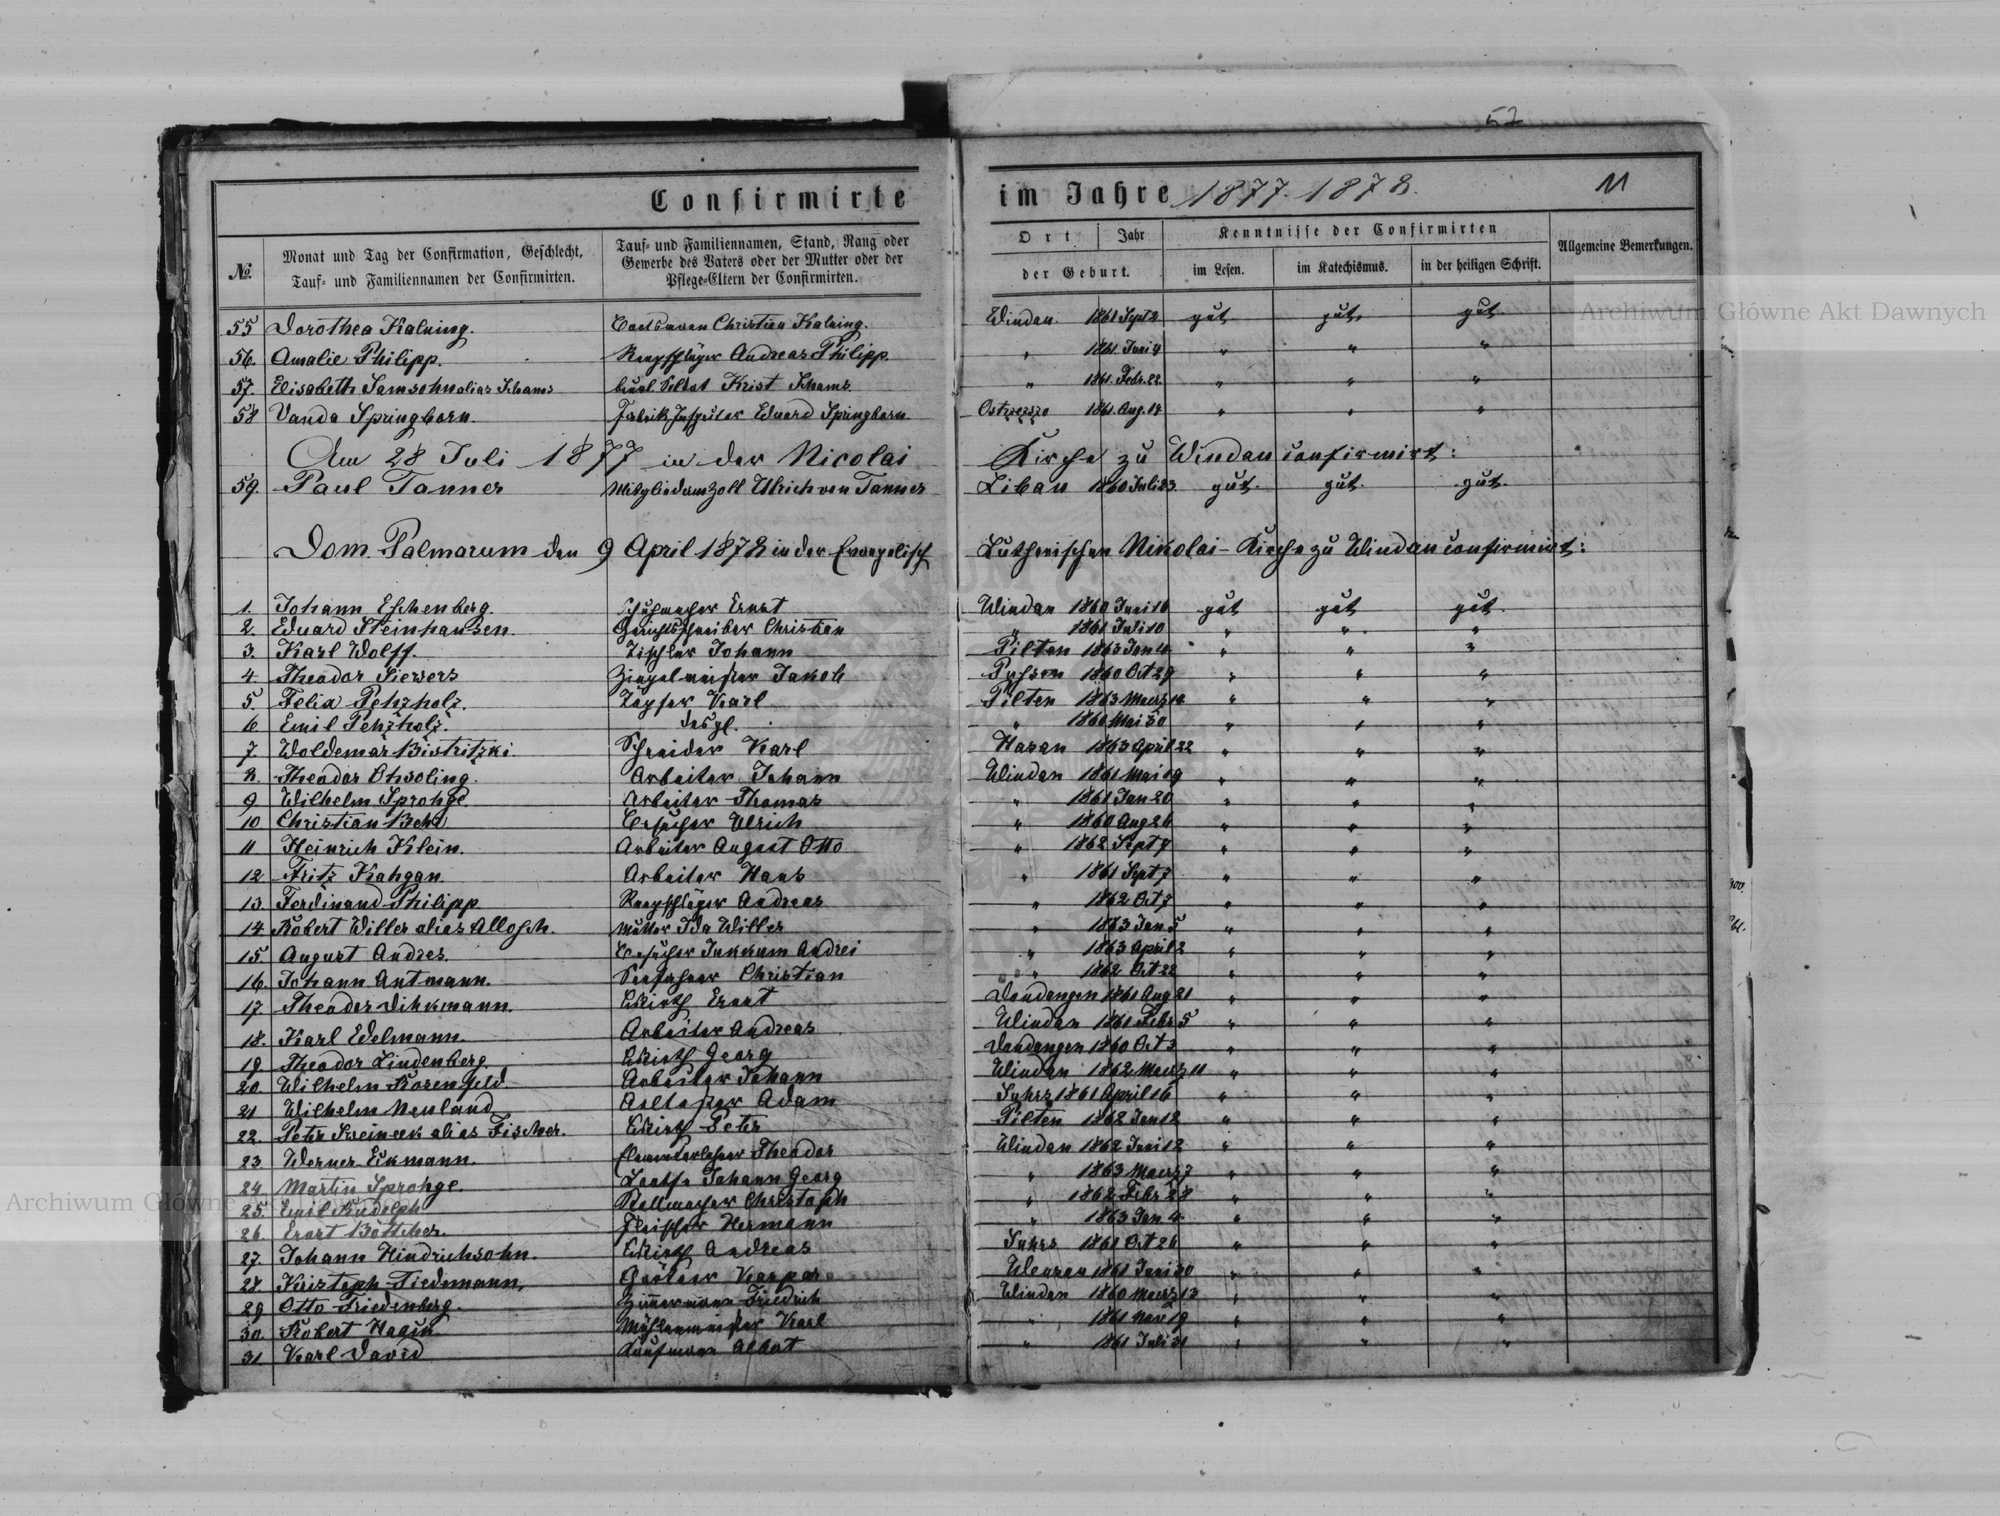 57
Confirmirte im Jahre 1877. 1878. 11
No. Monat und Tag der Confirmation, Geschlecht, Tauf- und Familiennamen der Confirmirten. Tauf- und Familiennamen, Stand, Rang oder Gewerbe des Vaters oder der Mutter oder der Pflege-Eltern der Confirmirten. Ort Jahr der Geburt. Kenntnisse der Confirmirten im Lesen. im Katechismus. in der heiligen Schrift. Allgemeine Bemerkungen.
55 Dorothea Kalning. Bootsmann Christian Kalning. Windau. 1861 Sept 2 gut gut. gut
56. Amalie Philipp. Reepschläger Andreas Philipp. " 1861 Juni 4 " " "
57. Elisabeth Samsohn alias Schams Soldat Krist Schams " 1861. Febr. 22 " " "
58 Vanda Springborn. Fabrik Inspector Eduard Springborn 1861. Aug. 18 " " "
Am 28 Juli 1877 in der Nicolai Kirche zu Windau confirmirt:
59. Paul Tanner Mitglied am Zoll Ulrich von Tanner Libau 1860 Juli 23 gut. gut. gut.
Dom. Palmarum den 9 April 1878 in der Evangelisch Lutherischen Nikolai-Kirche zu Windau confirmirt:
1. Johann Eschenberg. Schuhmacher Ernst Windau 1860 Juni 16 gut gut gut
2. Eduard Steinhausen. Gerichtsschreiber Christian " 1861 Juli 10 " " "
3. Karl Wolff. Tischler Johann Pilten 1863 Jan 4 " " "
4. Theodor Siewers Ziegelmeister Jakob 1860 Oct 29 " " "
5. Felix Pehzholz. Töpfer Karl Pilten 1863 Maerz 14 " " "
6. Emil Pehzholz. desgl. " 1860 Mai 30 " " "
7. Woldemar Bistritzki. Schneider Karl Hasau 1863 April 22 " " "
8. Theodor Ohsoling. Arbeiter Johann Windau 1861 Mai 19 " " "
9 Wilhelm Sprohge Arbeiter Thomas " 1861 Jan 20 " " "
10. Christian Ulrich " 1860 Aug 26 " " "
11 Heinrich Klein. Arbeiter August Otto " 1862 Sept 7 " " "
12 Fritz Kahgan Arbeiter Hans " 1861 Sept 7 " " "
13. Ferdinand Philipp Reepschläger Andreas " 1862 Oct 7 " " "
14 Robert Willer alias Allosch. Mutter Ida Willer " 1863 Jan 5 " " "
15 August Andres. Andrei " 1863 April 2 " " "
16. Johann Antmann. Seefahrer Christian " 1862 Oct 22 " " "
17. Theodor Dihkmann. Wirth Ernst Dondangen 1861 Aug 21 " " "
18. Karl Edelmann. Arbeiter Andreas Windau 1861 Febr 5 " " "
19 Theodor Lindenberg. Wirth Georg Dondangen 1860 Oct 3 " " "
20. Wilhelm Rosenfeld Arbeiter Johann Windau 1862 Maerz 11 " " "
21 Wilhelm Neuland Adam Suhrs 1861 April 16 " " "
22. Peter alias Fischer. Wirth Peter Pilten 1862 Jan 12 " " "
23 Werner Eikmann. Theodor Windau 1862 Juni 12 " " "
24. Martin Sprohge. Lootse Johann Georg " 1863 Maerz 7 " " "
25. Emil Rudolph Stellmacher Christoph " 1862 Febr 28 " " "
26. Ernst Böttcher. Fleischer Hermann " 1863 Jan 4 " " "
27. Johann Hindrichsohn. Wirth Andreas Suhrs 1861 Oct 26 " " "
28. Kristoph Tiedemann, Kaspar 1861 Juni 30 " " "
29 Otto Friedenberg. Zimmermann Friedrich Windau 1860 Maerz 13 " " "
30. Robert Mühlenmeister Karl " 1861 Nov 19 " " "
31 Karl David Kaufmann " 1861 Juli 31 " " "
Archiwum Główne Akt Dawnych
Archiwum Główne Akt Dawnych